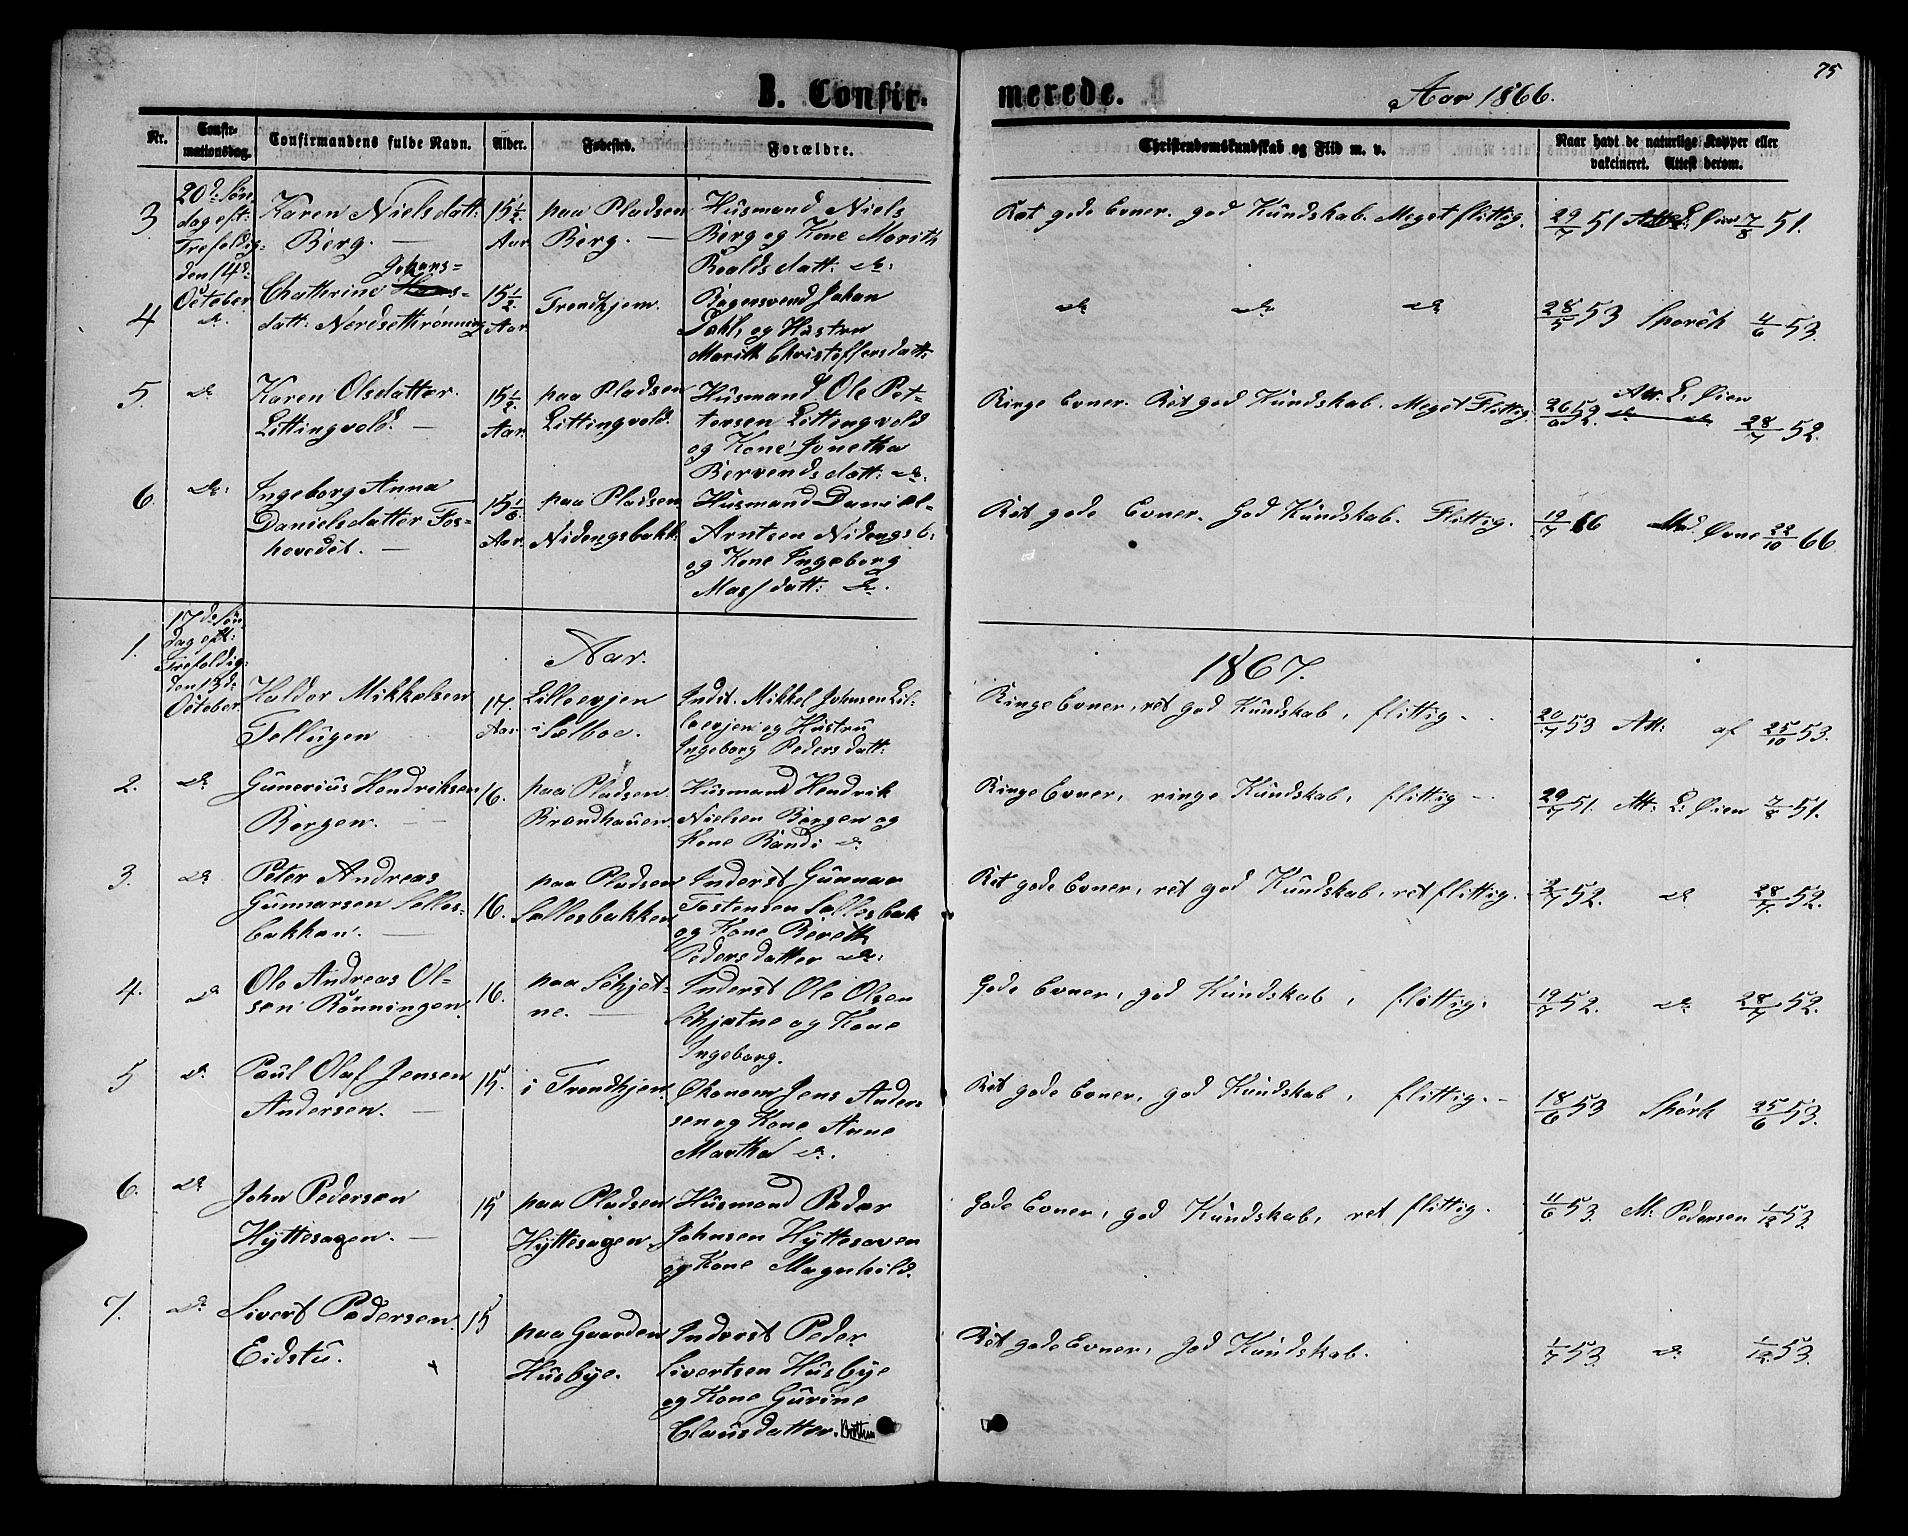 75
B. Confirmerede.
Aar 1866.
Nr.
Confirmationsdag.
Confirmandens fulde Navn.
Alder.
Fødested.
Forældre.
Christendomskundskab og Flid m. v.
Naar havt de naturlige Kopper eller
vakcineret. Attest derom.
3
20d. Søn
dag eft.
Trefoldig:
den 14d.
October
Karen Nielsdatt:
Berg. —
15½
Aar
paa Pladsen
Berg. —
Husmand Niels
Berg og Kone Marith
Roaldsdatt: do:
Ret gode Evner. god Kundskab. Meget flittig.
29/7 51 Att. L. Øien 7/8 51.
4
do.
Johans=
Chathrine Hans=
datt: Nordsethrønning
15½
Aar
Trondhjem.
Bøgersvend Johan
Dahl og Hustru
Marith Christoffersdatt:
do do do
28/5 53 Spørck 4/6 53.
5.
do
Karen Olsdatter
Littingvold. —
15½
Aar.
paa Pladsen
Littingvold.
Husmand Ole Pet=
tersen Littingvold
og Kone Jonetha
Berventsdatt: do.
Ringe Evner. Ret god Kundskab. Meget Flittig.
Att. L. Øien
28/7 52.
6
do:
Ingeborg Anna
Danielsdatter Fos=
hovedet. —
Aar.
paa Pladsen
Nidengsbakk.
Husmand Daniel
Arntsen Nidengsb:
og Kone Ingeborg
Massdatt: do.
Ret gode Evner. God Kundskab. Flittig.
19/7 66 Øvne 22/10 66
Aar. 1867.
1.
17de Søn
dag eft:
Trefoldig:
den 13d.
October.
Haldor Mikkelsen
Tellugen
17.
Aar
Lilleevjen
i Sælboe.
Indst. Mikkel Johnsen Lil=
leevjen og Hustru
Ingeborg Pedersdatt:
Ringe Evner, ret god Kundskab, flittig -
20/7 53 Att: af 25/10 53.
2.
do
Gunerius Hendriksen
Borgen. —
16.
paa Pladsen
Brændhauen.
Husmand Hendrik
Nielsen Borgen og
Kone Randi do
Ringe Evner, ringe Kundskab, flittig -
29/7 51. Att: L. Øien 7/8 51.
3.
do
Peter Andreas
Gunnarsen Solles=
bakken. —
16.
paa Pladsen
Sollesbakken
Inderst Gunnar
Tostensen Sollesbak
og Kone Bereth
Pedersdatter do:
Ret gode Evner, ret god Kundskab, ret flittig.
2/7 52. do 28/7 52.
4.
do
Ole Andreas Ol=
sen Rønningen.
16.
paa Schjet=
ne. —
Inderst Ole Olsen
Schjetne og Kone
Ingeborg.
Gode Evner, god Kundskab, flittig.
19/7 52. do 28/7 52.
5
do.
Paul Olaf Jensen
Andersen. —
15.
i Trondhjem
Økonom Jens Ander=
sen og Kone Anne
Martha do.
Ret gode Evner, god Kundskab, flittig. -
18/6 53 Spørk 25/6 53.
6.
do
John Pedersen
Hyttesagen. —
15
paa Pladsen
Hyttesagen.
Husmand Peder
Johnsen Hyttesaven
og Kone Magnhild.
Gode Evner, god Kundskab, ret flittig.
11/6 53. M. Pedersen 1/12 53.
7.
do
Sivert Pedersen
Eidstu.
15
paa Gaarden
Husbye.
Inderst Peder
Sivertsen Husbye
og Kone Gurine
Clausdatter.
Ret gode Evner, god Kundskab.
1/7 53 do 1/12 53.